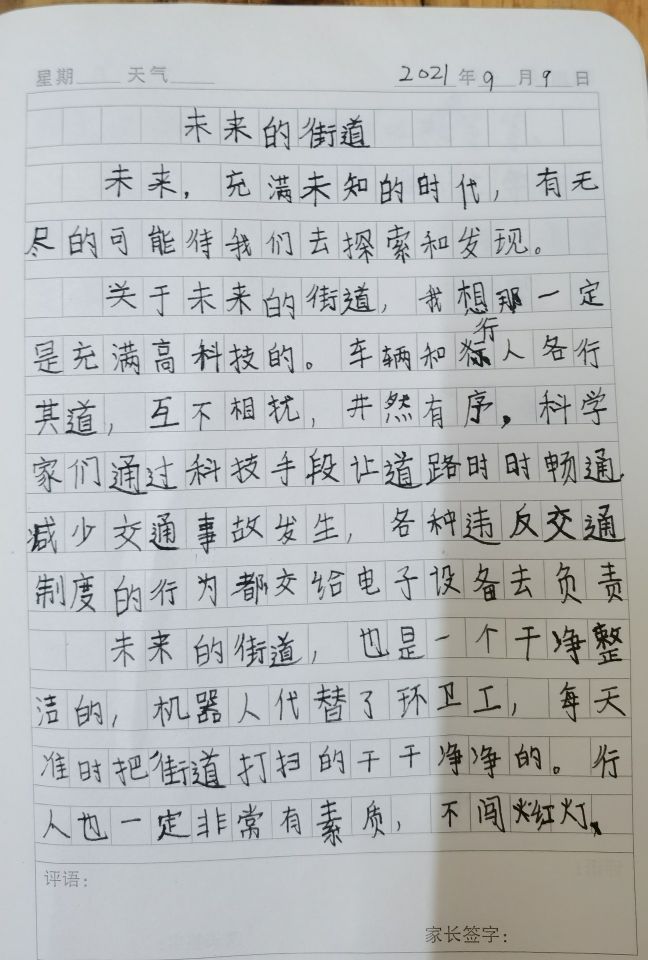 星期 天气 2021年9月9日
未来的街道
未来，充满未知的时代，有无
尽的可能待我们去探索和发现。
关于未来的街道，我想那一定
是充满高科技的。车辆和行人各行
其道，互不相扰，井然有序，科学
家们通过科技手段让道路时时畅通
减少交通事故发生，各种违反交通
制度的行为都交给电子设备去负责
未来的街道，也是一个干净整
洁的，机器人代替了环卫工，每天
准时把街道打扫的干干净净的。行
人也一定非常有素质，不闯红灯、
评语：
家长签字：